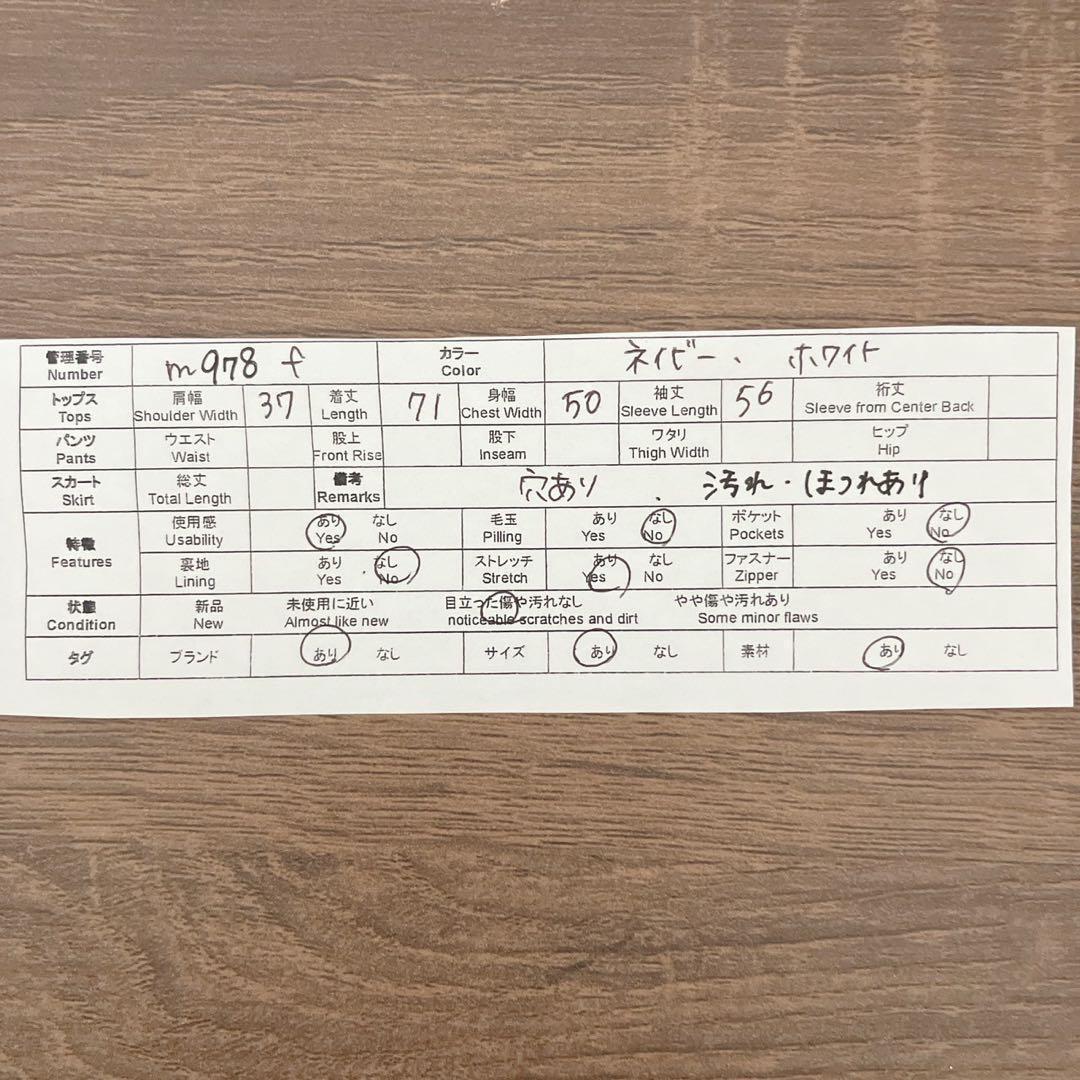 管理番号 m978 f カラー ネイビー、ホワイト
Number Color
トップス 肩幅 37 着丈 71 身幅 50 袖丈 56 裄丈
Tops Shoulder Width Length Chest Width Sleeve Length Sleeve from Center Back
パンツ ウエスト 股上 股下 ワタリ ヒップ
Pants Waist Front Rise Inseam Thigh Width Hip
スカート 総丈 備考 穴あり、汚れ・ほつれあり
Skirt Total Length Remarks
特徴 使用感 あり なし 毛玉 あり なし ポケット あり なし
Features Usability Yes No Pilling Yes No Pockets Yes No
裏地 あり なし ストレッチ あり なし ファスナー あり なし
Lining Yes No Stretch Yes No Zipper Yes No
状態 新品 未使用に近い 目立った傷や汚れなし やや傷や汚れあり
Condition New Almost like new noticeable scratches and dirt Some minor flaws
タグ ブランド あり なし サイズ あり なし 素材 あり なし